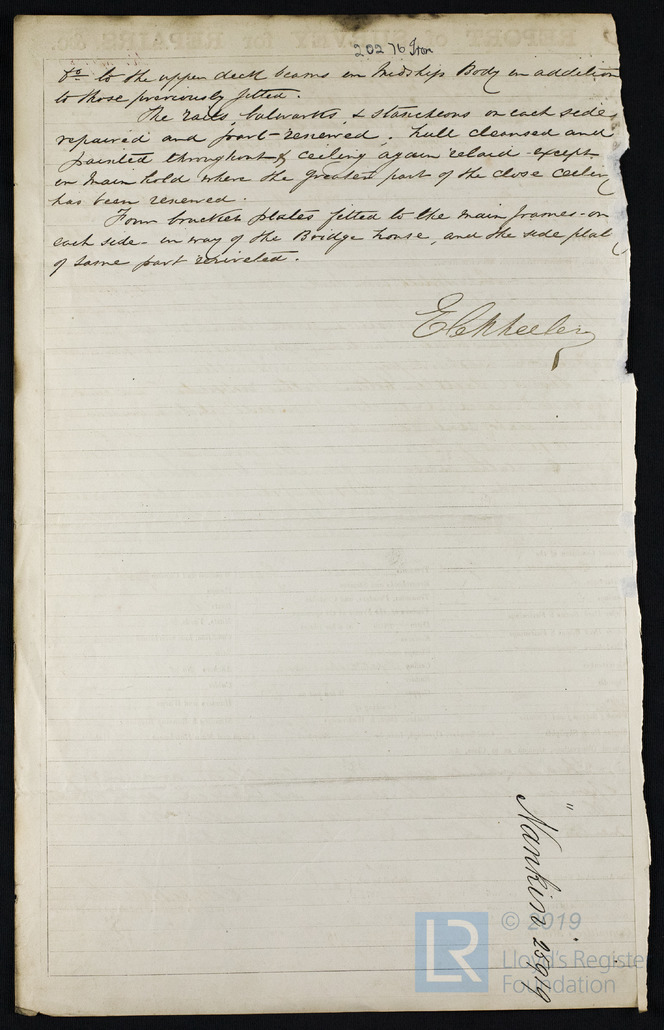 20276 Iron
Do to the upper deck beams in Midship Body in addition
to those previously fitted.
The rails, bulwarks, & stanchions on each side
repaired and part renewed, hull cleansed and
painted throughout & ceiling again relaid except
in Main hold where the greater part of the close ceiling
has been renewed.
Four bracket plates fitted to the main frames on
each side in way of the Bridge house, and the side plat
of same part reriveted.
"Nankin" 25919
LR
© 2019
Lloyd's Register
Foundation
REPORT of SURVEY for REPAIRS, &c.